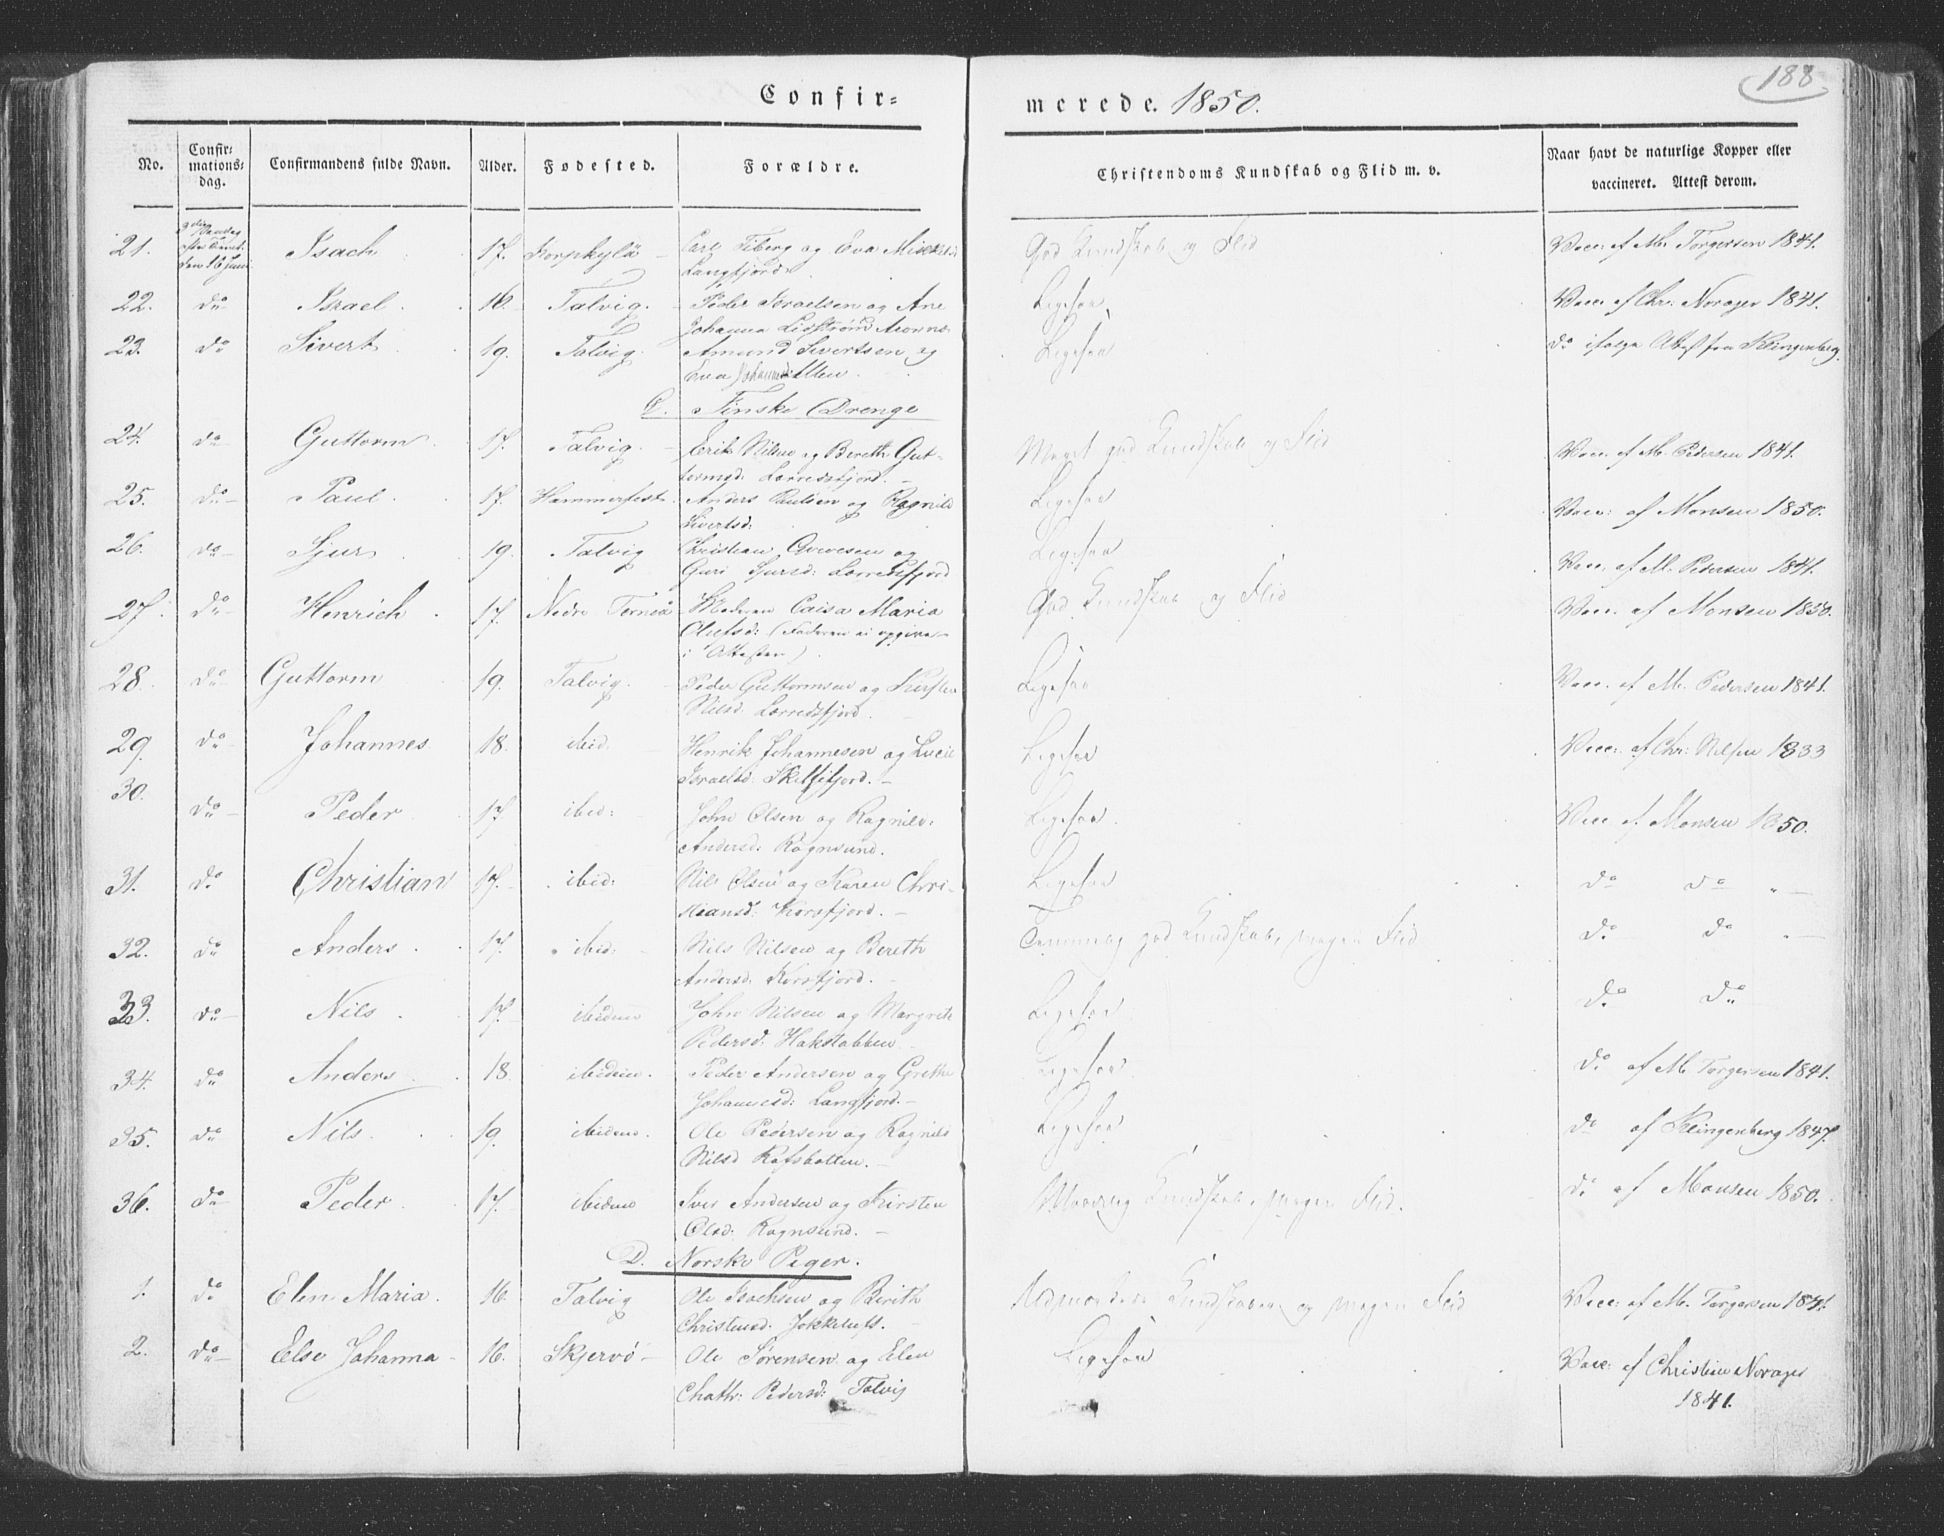 188
Confir-
merede. 1850.
No. Confir-mations-dag. Confirmandens fulde Navn. Alder. Fødested. Forældre. Christendoms Kundskab og Flid m. v. Naar havt de naturlige Kopper eller vaccineret. Attest derom.
21. den 16 Juni Isach 17. Korpkylä Carl Fiberg og Eva God Kundskab og Flid Vacc: af M. Torgersen 1841.
Langfjord
22. do Israel 16. Talvig. Peder Israelsen og Ane Ligesaa Vacc: af Chr: Norager 1841.
Johanna
23. do Sivert 19. Talvig. Amund Sivertsen og Ligesaa do ifølge Attest fra Klingenberg.
Eva
C. Finske Drenge
24. do Guttorm 17. Talvig. Erik Nilsen og Bereth Gut- Meget god Kundskab og Flid Vacc. af M. Pedersen 1841.
tormsd:
25. do Paul 17. Hammerfest Anders Paulsen og Ragnild Ligesaa Vacc: af Monsen 1850.
Sivertsd:
26. do Sjur 19. Talvig Christian og Ligesaa Vacc. af M. Pedersen 1841.
Guri Sjursd:
27. do Henrich 17. Nedre Torneå Moderen Caisa Maria God Kundskab og Flid Vacc. af Monsen 1850.
Olufsd: (Faderen ei opgiven
i Attesten).
28. do Guttorm 19. Talvig. Peder Guttormsen og Kirsten Ligesaa Vacc. af M. Pedersen 1841.
Nilsd.
29. do Johannes 18. ibid: Henrik Johannesen og Lucie Ligesaa Vacc: af Chr: Nilsen 1833
Israelsd.
30. do Peder 17. ibid: John Olsen og Ragnild: Ligesaa Vacc af Monsen 1850.
Andersd: Rognsund.
31. do Christian 17. ibid: Nils Olsen og Karen Chri- Ligesaa do do
stiansd: Korsfjord.
32. do Anders 17. ibid: Nils Nilsen og Bereth Temmelig god Kundskab, megen Flid do do
Andersd. Korsfjord.
33. do Nils 17. ibidem John Nilsen og Margrete Ligesaa do do
Pedersd: Hakstabben
34. do Anders 18 ibidem. Peder Andersen og Grethe Ligesaa do af M. Torgersen 1841.
Johannesd: Langfjord.
35. do Nils 19. ibidem. Ole Pedersen og Ragnild Ligesaa do af Klingenberg 1847.
Nilsd Rafsbotten.
36. do Peder 17. ibidem Iver Andersen og Kirsten Maadelig Kundskab, megen Flid. do af Monsen 1850.
Olsd: Rognsund.
D. Norske Piger.
1. do Elen Maria. 16. Talvig Ole Isachsen og Berith Udmærket Kundskaber og megen Flid Vacc: af M. Torgersen 1841.
Christensd. Jokkeluft.
2. do Else Johanna 16. Skjervö Ole Sørensen og Elen Ligesaa Vacc: af Christian Norager
Chath: Pedersd: Talvig 1841.